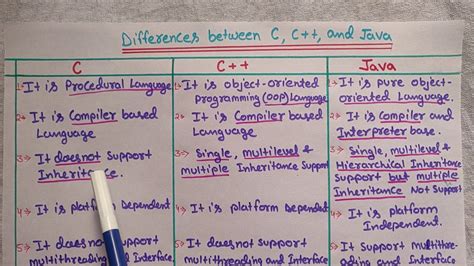 Differences between C, C++, and Java
C
1→ It is Procedural Language
2→ It is Compiler based
Language
3→ It doesnot Support
Inheritance.
4→ It is platform Dependent
5→ It doesnot Support
multithreading and Interface
C++
1→ It is object-oriented
programming (OOP) Language
2→ It is Compiler based
Language
3→ Single, multilevel &
multiple Inheritance Support
4→ It is platform Dependent
5→ It doesnot Support
multithreading and Interface
Java
1→ It is pure object-
oriented Language.
2→ It is compiler and
Interpreter base.
3→ Single, multilevel &
Hierarchical Inheritance
Support but multiple
Inheritance Not Support
4→ It is platform
Independent.
5→ It Support multithrea-
ding and Interface